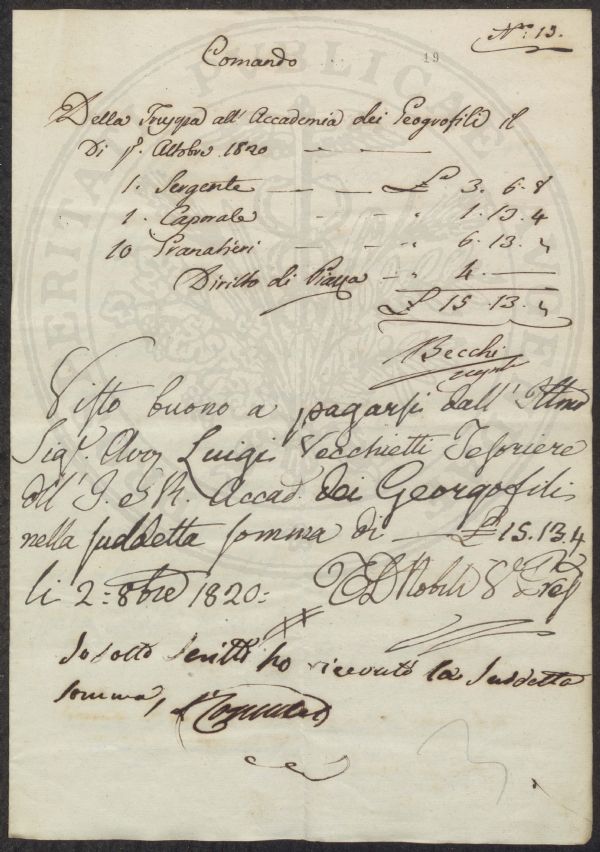 N.º 13.
19
Comando
Della Truppa all' Accademia dei Geogrofili il
Di p.º Ottobre 1820
1. Sergente — — £ 3. 6. 8
1. Caporale - - " 1. 13. 4
10 Granatieri - - " 6. 13. "
Diritto di Piazza - " 4. —
£ 15. 13. "
Becchi
Visto buono a pagarsi dall' Illmo
Sig.r Avv Luigi Vecchietti Tesoriere
dell' I. e R. Accad. dei Georgofili
nella suddetta somma di — £ 15. 13. 4
li 2 = 8bre 1820 =
Io sotto Scritto ho ricevuto la Suddetta
somma,